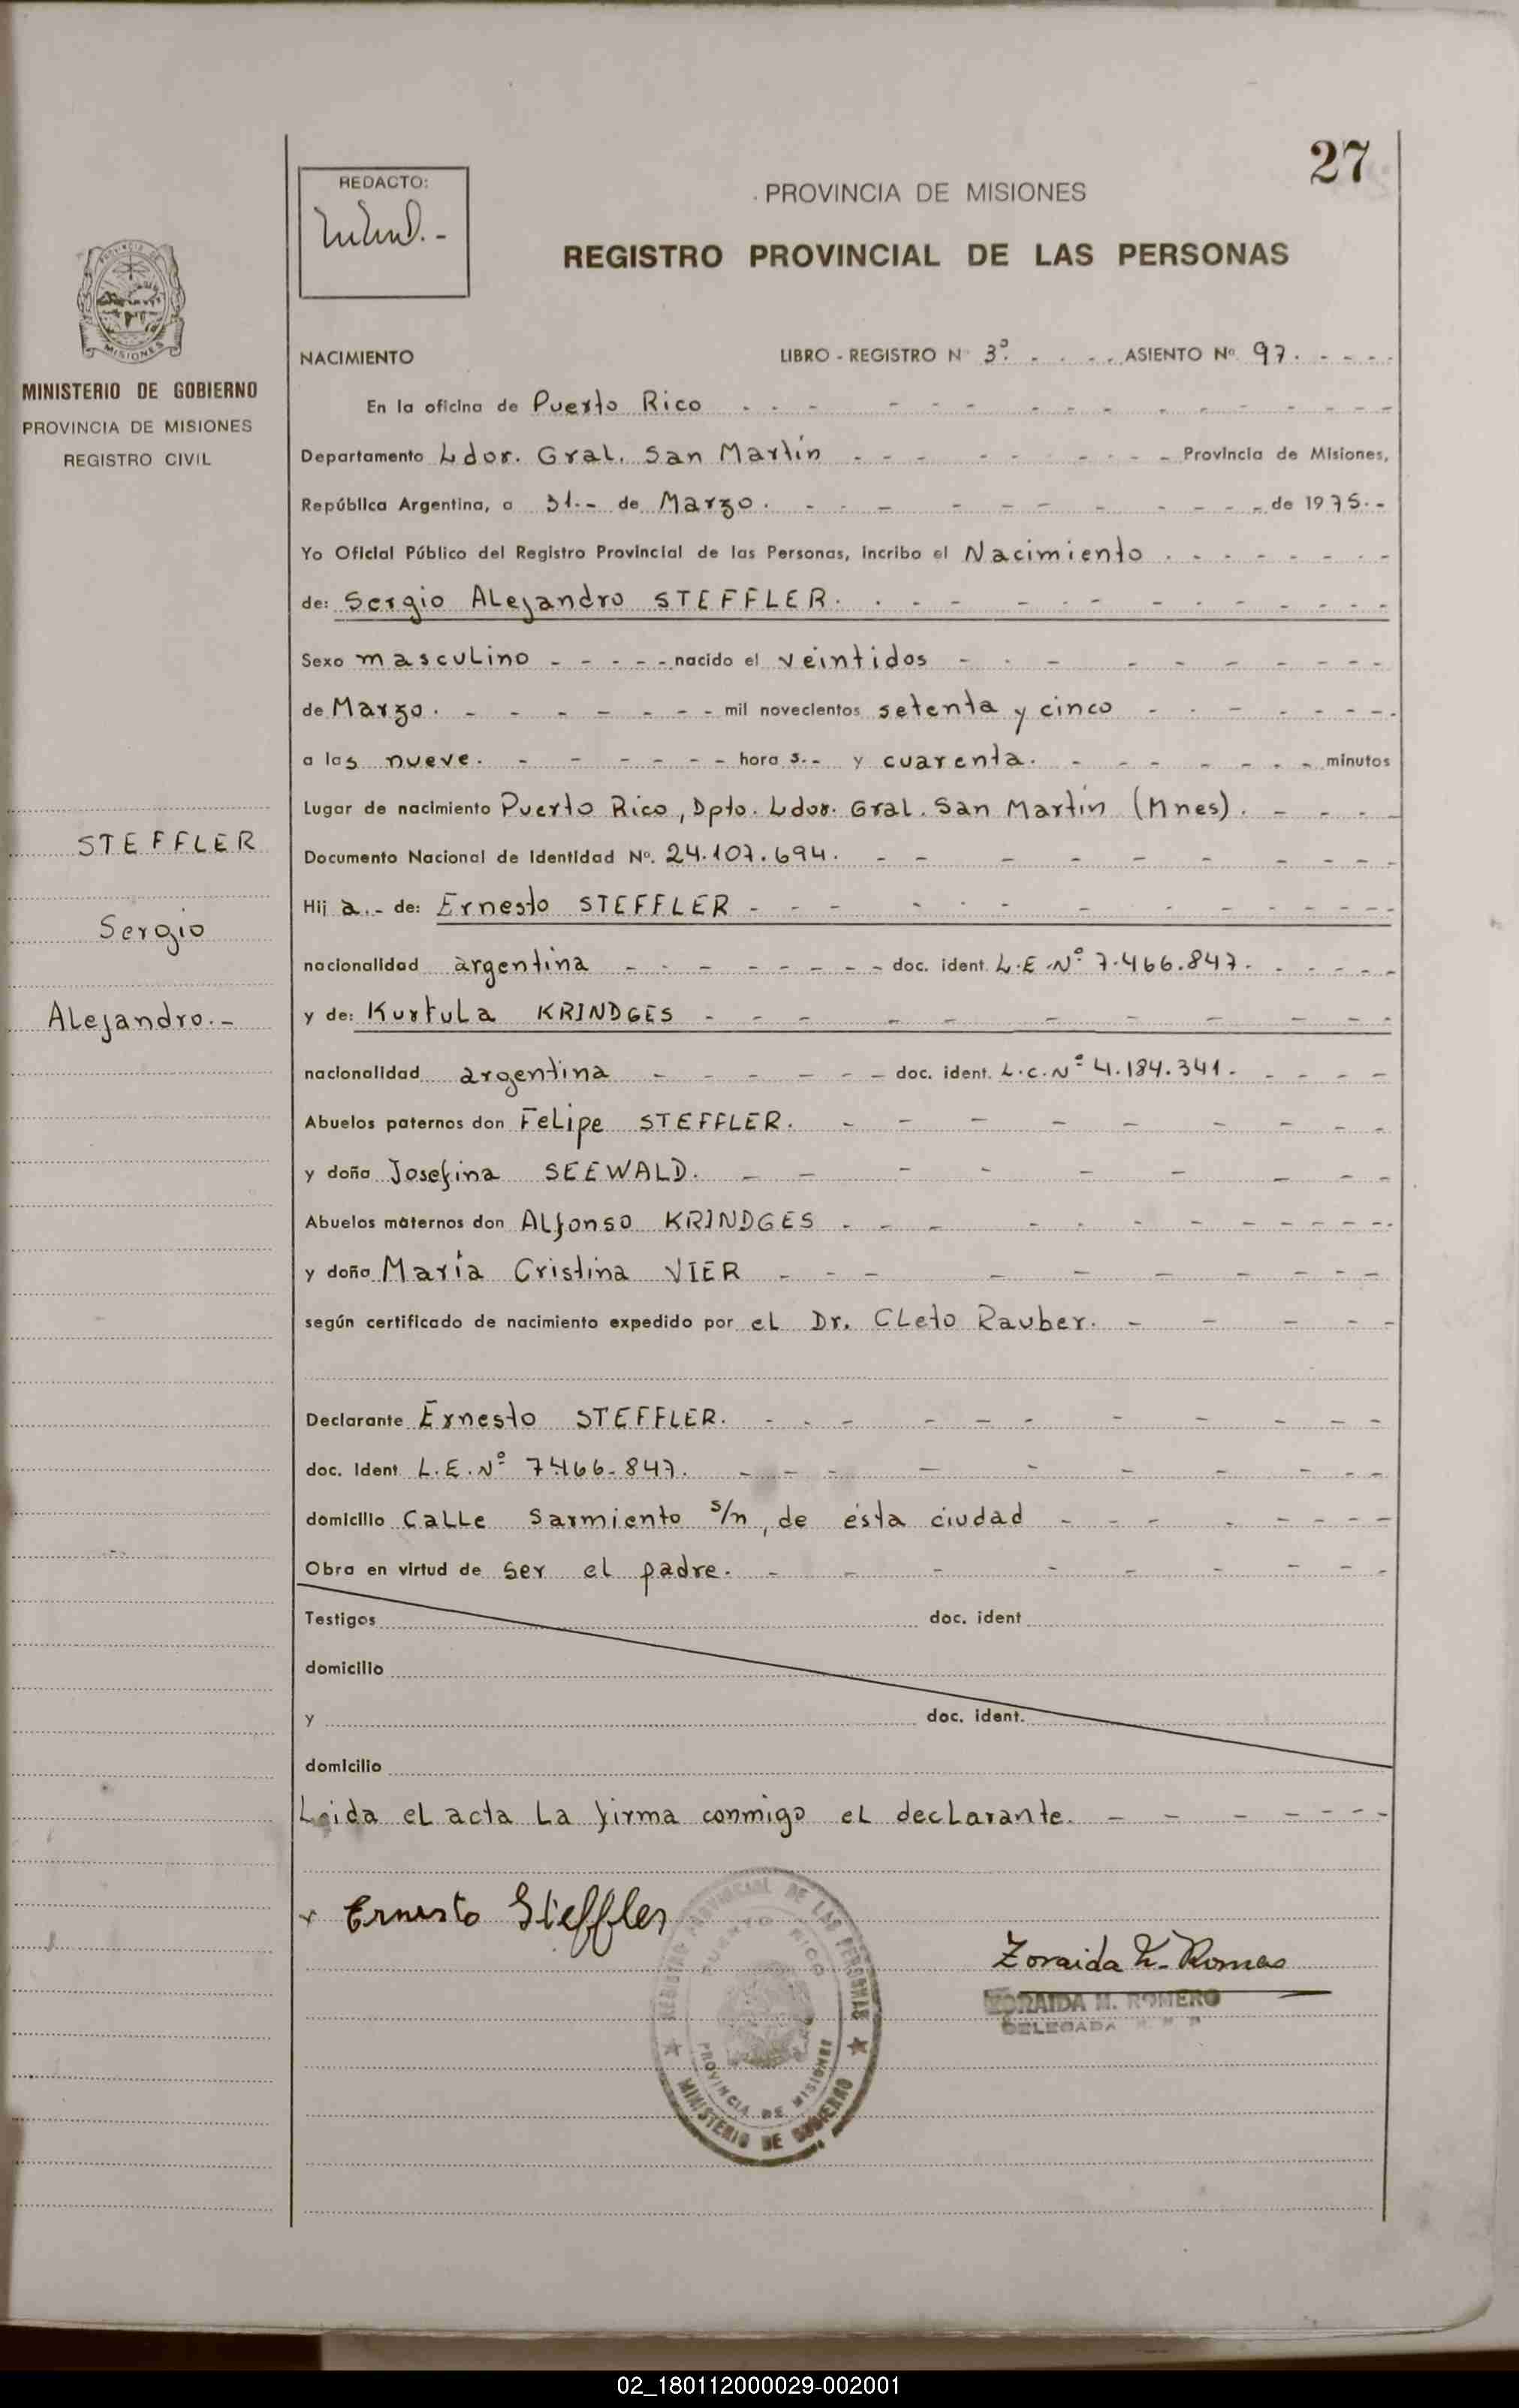 27
REDACTO:
PROVINCIA DE MISIONES
REGISTRO PROVINCIAL DE LAS PERSONAS
MISIONES
MINISTERIO DE GOBIERNO
PROVINCIA DE MISIONES
REGISTRO CIVIL
STEFFLER
Sergio
Alejandro.-
NACIMIENTO LIBRO - REGISTRO Nº 3º. ASIENTO Nº 97.
En la oficina de Puerto Rico
Departamento Ldor. Gral. San Martín Provincia de Misiones,
República Argentina, a 31.- de Marzo. de 1975.-
Yo Oficial Público del Registro Provincial de las Personas, incribo el Nacimiento
de: Sergio Alejandro STEFFLER.
Sexo masculino nacido el veintidos
de Marzo. mil novecientos setenta y cinco
a las nueve. hora s.- y cuarenta. minutos
Lugar de nacimiento Puerto Rico, Dpto. Ldor. Gral. San Martín (Mnes).
Documento Nacional de Identidad Nº. 24.107.694.
Hij a.- de: Ernesto STEFFLER
nacionalidad argentina doc. ident. L.E.Nº 7.466.847.
y de: Kurtula KRINDGES
nacionalidad argentina doc. ident. L.C.Nº 4.184.341.
Abuelos paternos don Felipe STEFFLER.
y doña Josefina SEEWALD.
Abuelos maternos don Alfonso KRINDGES
y doña María Cristina VIER
según certificado de nacimiento expedido por el Dr. Cleto Rauber.
Declarante Ernesto STEFFLER.
doc. ident L.E.Nº 7.466.847.
domicilio Calle Sarmiento s/n, de ésta ciudad
Obra en virtud de ser el padre.
Testigos doc. ident
domicilio
y doc. ident.
domicilio
Leida el acta la firma conmigo el declarante.
Ernesto Steffler
REGISTRO PROVINCIAL DE LAS PERSONAS
PUERTO RICO
PROVINCIA DE MISIONES
MINISTERIO DE GOBIERNO
Zoraida M. Romero
ZORAIDA M. ROMERO
DELEGADA
02_180112000029-002001